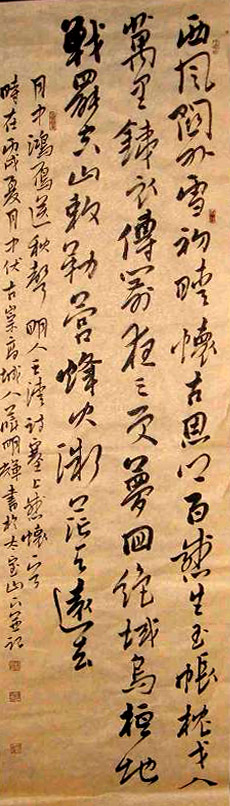 西風關外雪初晴懷古思鄉百感生玉帳枕戈人
萬里鐵衣傳箭夜三更夢回絕域烏桓地
戰罷空山敕勒營烽火微茫天遠去
月中鴻雁送秋聲 明人王詩塞上感懷
時在丙戌夏月中伏古崇高城人明輝書於太室山下並記